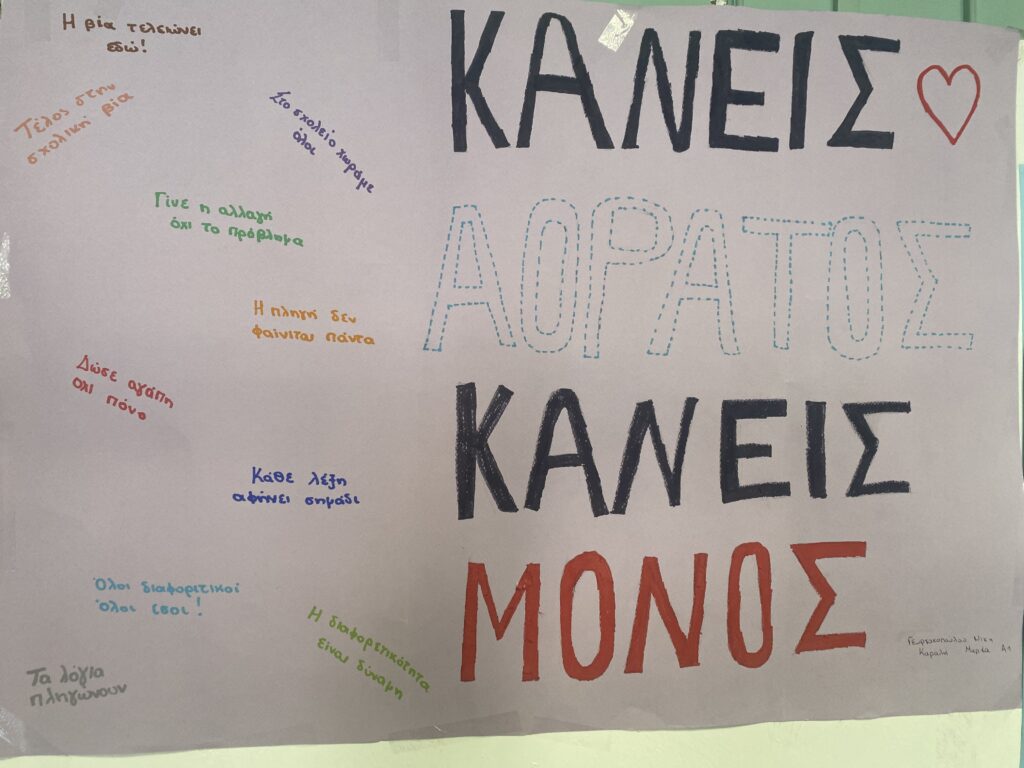 Η βία τελειώνει
εδώ!
Τέλος στην
σχολική βία
Στο σχολείο χωράμε
όλοι
Γίνε η αλλαγή
όχι το πρόβλημα
Η πληγή δεν
φαίνεται πάντα
Δώσε αγάπη
όχι πόνο
Κάθε λέξη
αφήνει σημάδι
Όλοι διαφορετικοί
Όλοι ίσοι!
Η διαφορετικότητα
είναι δύναμη
Τα λόγια
πληγώνουν
ΚΑΝΕΙΣ
ΑΟΡΑΤΟΣ
ΚΑΝΕΙΣ
ΜΟΝΟΣ
Α1